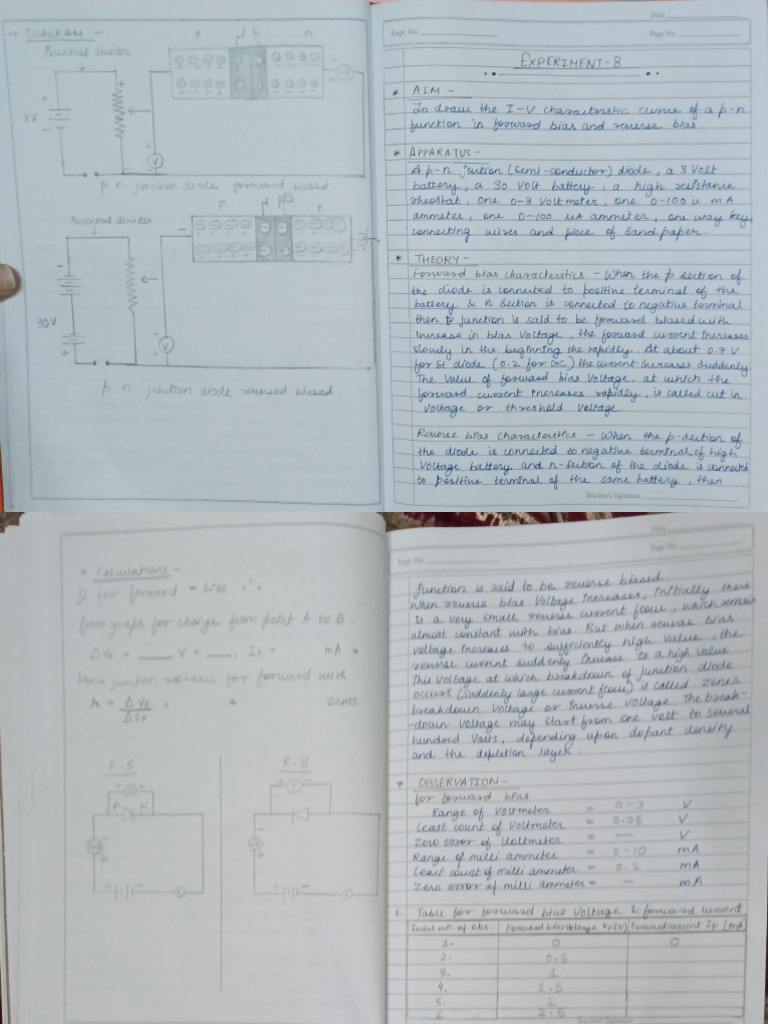 → DIAGRAM -
Potential divider
P
n
3V
V
p-n junction diode forward biased.
Potential divider
P
n
30V
V
p-n junction diode reversed biased.
Date
Expt. No.
Page No.
EXPERIMENT-8
* AIM -
To draw the I-V characterstic curve of a p-n
junction in forward bias and reverse bias.
* APPARATUS -
A p-n juntion (semi-conductor) diode, a 3 Volt
battery, a 30 Volt battery, a high resistance
rheostat, one 0-3 Volt meter, one 0-100 u mA
ammeter, one 0-100 uA ammeter, one way key,
connecting wires and piece of Sandpaper.
* THEORY -
Forward bias characterstics - When the p section of
the diode is connected to positive terminal of the
battery & n section is connected to negative terminal
then junction is said to be forward biased with
Increase in bias Voltage, the forward current increases
slowly in the beginning the rapidly. At about 0.7 V
for Si diode (0.2 for Ge) the current increases suddenly
The Value of forward bias Voltage, at which the
forward current increases rapidly, is called cut in
Voltage or threshold Voltage
Reverse bias characterstics - When the p-section of
the diode is connected to negative terminal of high
Voltage battery and n-section of the diode is connected
to positive terminal of the same battery, then
Teacher's Signature
* Calculations -
for forward - bias
from graph for change from point A to B.
ΔVF = ___ V = ___, IF = mA =
Hence junction resistance for forward
r = ΔVF / ΔIF = = ohms
F.B
R.B
V
P N
V
Date
Expt. No.
Page No.
Junction is said to be reverse biased.
When reverse bias Voltage increases, initially there
is a very small reverse current flow, which remain
almost constant with bias. But when reverse bias
voltage increases to sufficiently high value, the
reverse current suddenly to a high value
This Voltage at which breakdown of junction diode
occurs (suddenly large current flow) is called zener
breakdown Voltage or inverse Voltage. The break-
down Voltage may start from one volt to several
hundred Volts, depending upon dopant density
and the depletion layer.
* OBSERVATION -
for forward bias
Range of Voltmeter = 0-3 V
Least count of Voltmeter = 0.05 V
Zero error of Voltmeter = — V
Range of milli ammeter = 0-10 mA
Least count of milli ammeter = 0.2 mA
Zero error of milli ammeter = — mA
1. Table for forward bias Voltage & forward current
Serial no. of obs. Forward bias Voltage VF(V) Forward current IF (mA)
1. 0 0
2. 0.5
3. 1
4. 1.5
5. 2
6 2.5
Teacher's Signature